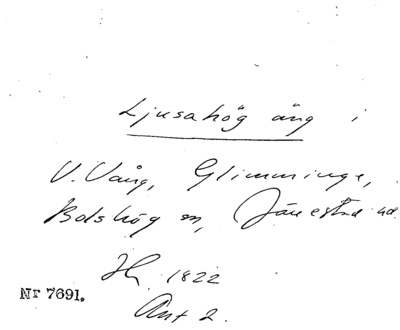 Ljusahög äng i
V. Vång, Glimminge,
Bolshög sn, Järrestad hd.
Hy. 1822
Nr 7691.
Akt 2.